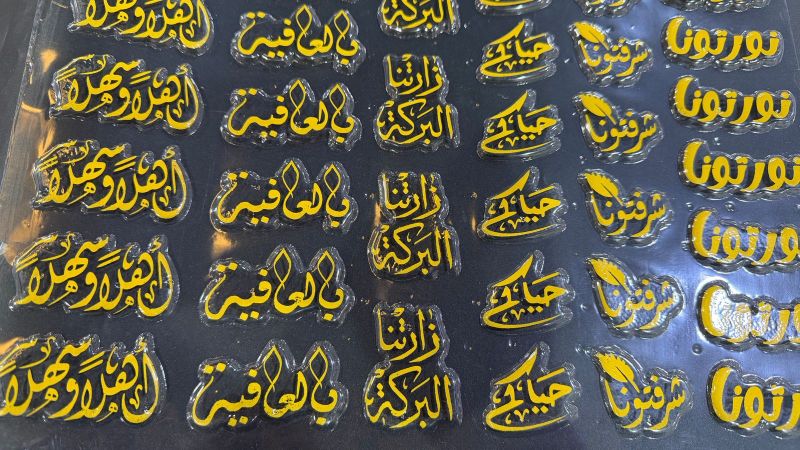 أهلاً وسهلاً بالعافية البركة حياكم شرفتونا نورتونا
أهلاً وسهلاً بالعافية زارتنا البركة حياكم شرفتونا نورتونا
أهلاً وسهلاً بالعافية زارتنا البركة حياكم شرفتونا نورتونا
أهلاً وسهلاً بالعافية زارتنا البركة حياكم شرفتونا نورتونا
أهلاً وسهلاً بالعافية زارتنا البركة حياكم شرفتونا نورتونا